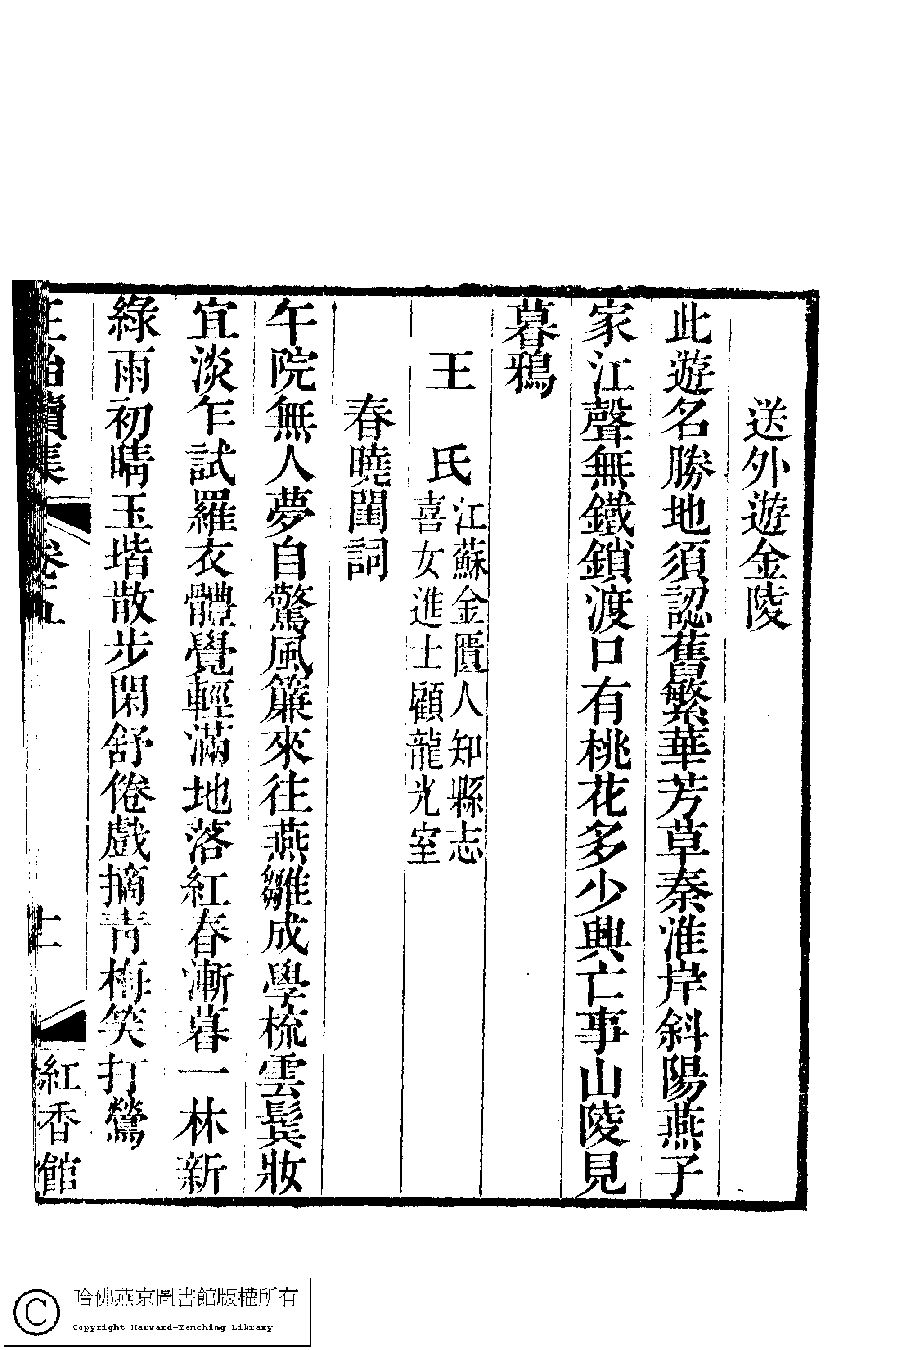 送外遊金陵
此遊名勝地須認舊繁華芳草秦淮岸斜陽燕子
家江聲無鐵鎖渡口有桃花多少興亡事山陵見
暮鴉
王氏江蘇金匱人知縣志
喜女進士顧龍光室
春曉閨詞
午院無人夢自驚風簾來往燕雛成學梳雲鬓妝
宜淡乍試羅衣體覺輕滿地落紅春漸暮一林新
綠雨初晴玉堦散步閑舒倦戲摘青梅笑打鶯
續集 卷五 十二 紅香館
哈佛燕京圖書館版權所有
Copyright Harvard-Yenching Library